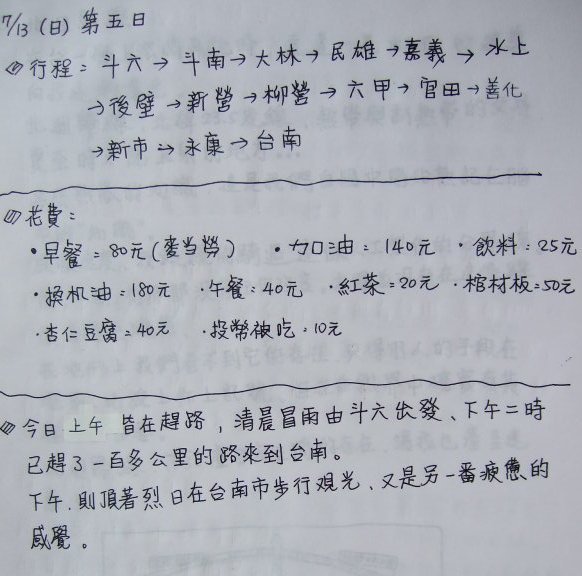 7/13 (日) 第五日
行程：斗六→斗南→大林→民雄→嘉義→水上
→後壁→新營→柳營→六甲→官田→善化
→新市→永康→台南
花費：
·早餐=80元(麥当勞) ·加口油=140元 ·飲料=25元
·換机油=180元 ·午餐=40元 ·紅茶=20元 ·棺材板=50元
·杏仁豆腐=40元 ·投幣被吃=10元
今日上午皆在趕路，清晨冒雨由斗六出發、下午二時
已趕了一百多公里的路來到台南。
下午、則頂著烈日在台南市步行观光、又是另一番疲憊的
感覺。